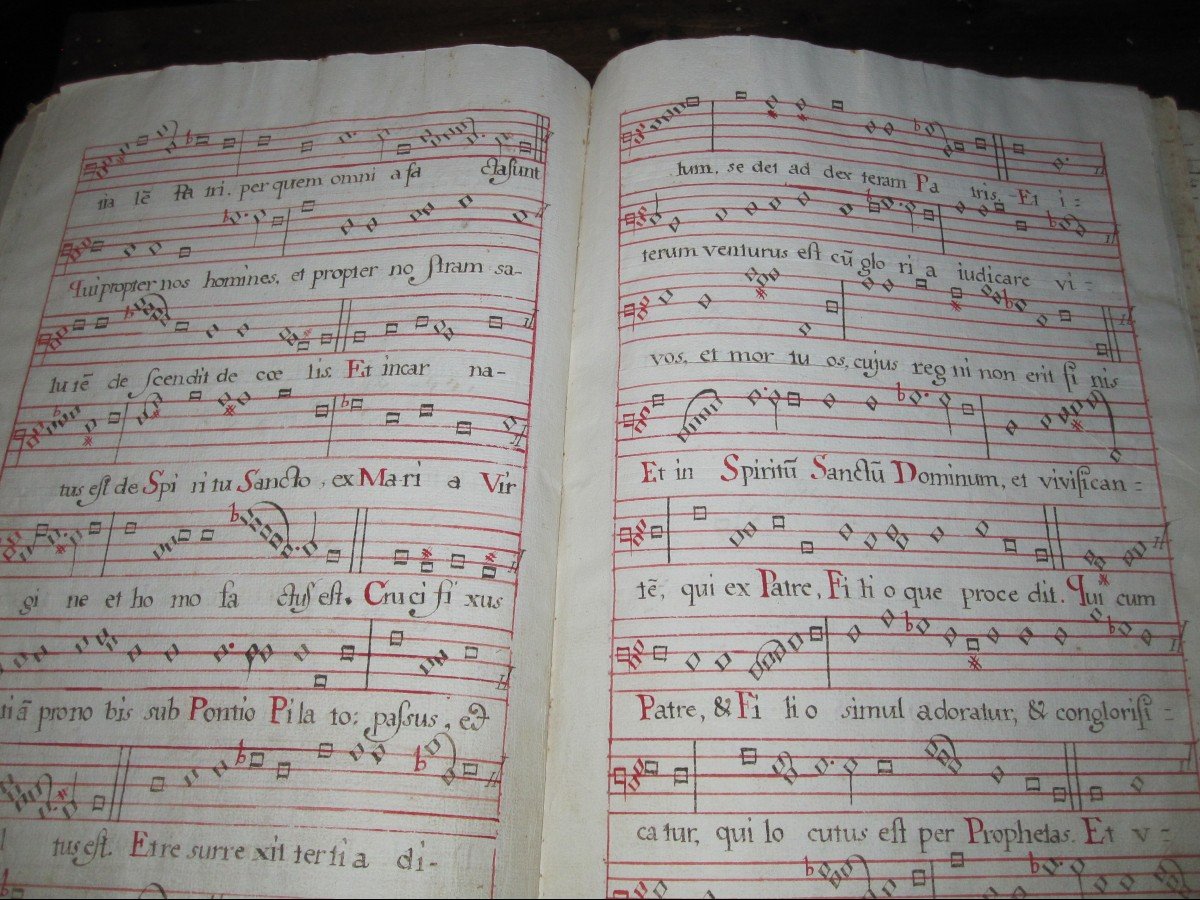 tia lē Pa tri. per quem omni a fa ctasunt
Qui propter nos homines, et propter no stram sa-
lu tē de scendit de cœ lis. Et incar na-
tus est de Spi ri tu Sancto, ex Mari a Vir
gi ne et ho mo fa ctus est. Cruci fi xus
tiā prono bis sub Pontio Pila to: passus, et
tus est. Et re surre xit terti a di-
lum, se det ad dex teram Pa tris, Et i=
terum venturus est cū glo ri a iudicare vi=
vos, et mor tu os, cujus reg ni non erit fi nis
Et in Spiritū Sanctū Dominum, et vivifican=
tē, qui ex Patre, Fi li o que proce dit. Qui cum
Patre, & Fi li o simul adoratur, & conglorifi=
ca tur, qui lo cutus est per Prophetas. Et v=